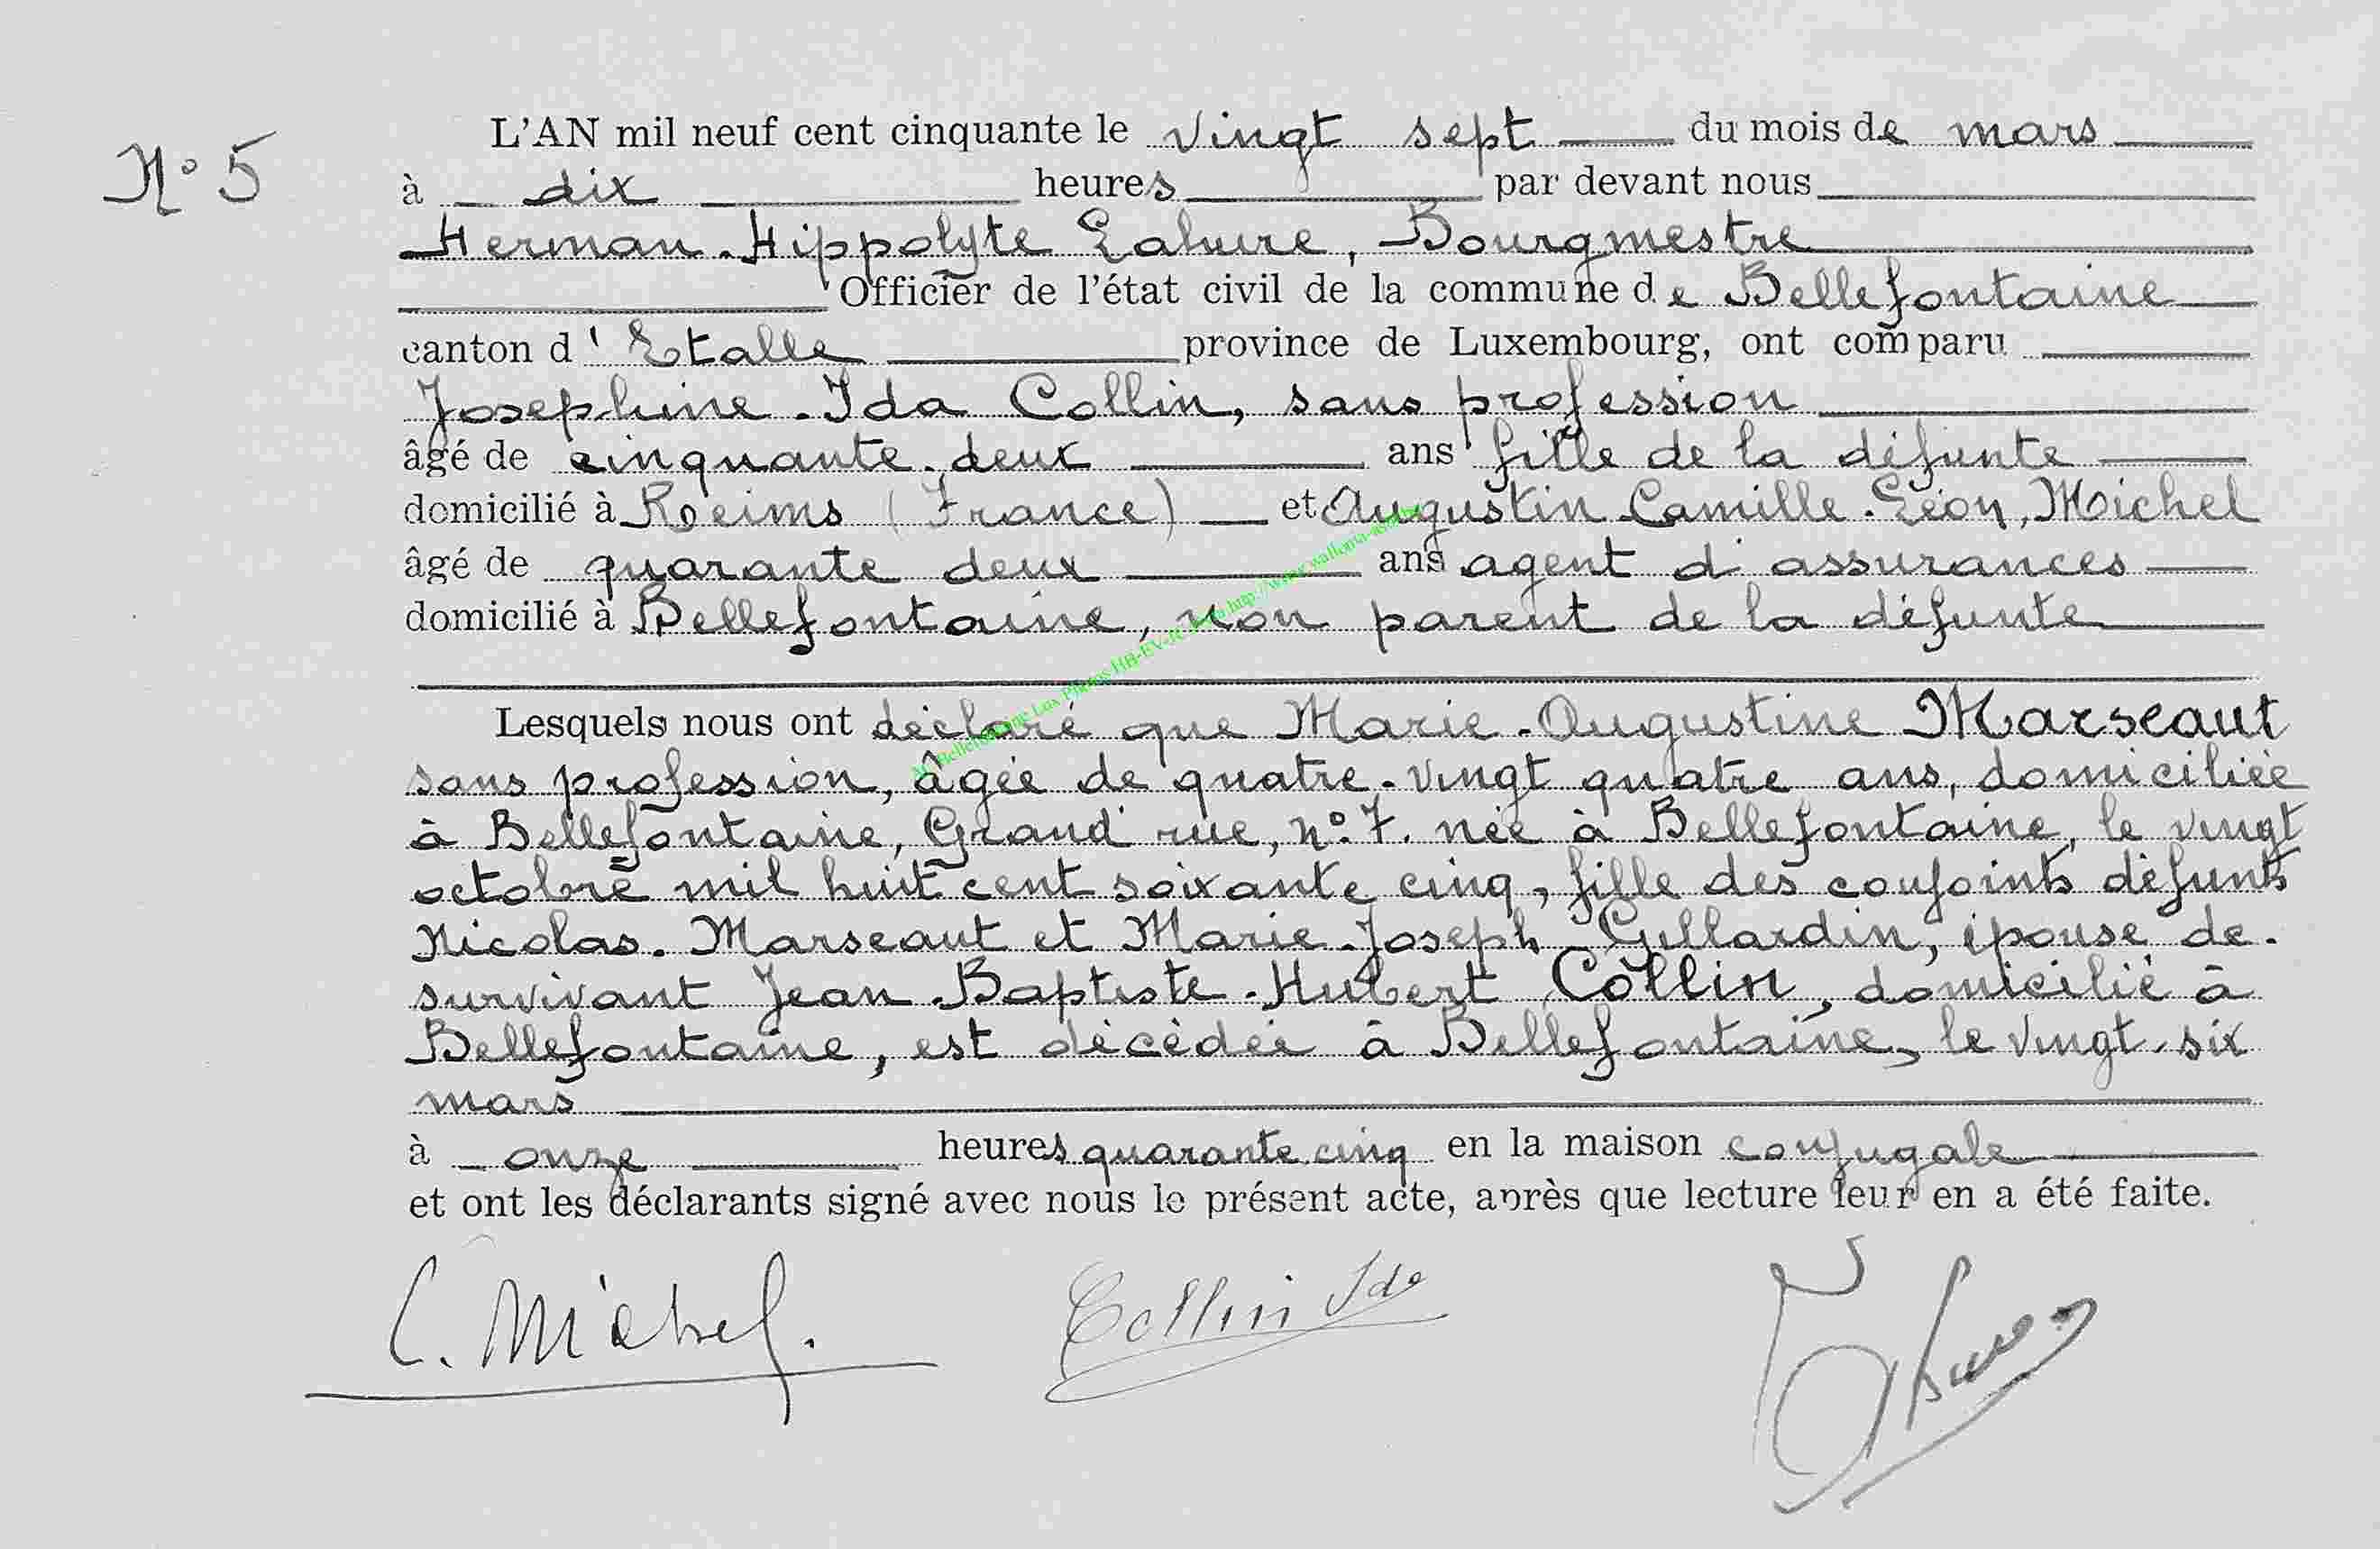 N° 5
L'AN mil neuf cent cinquante le vingt sept du mois de mars
à dix heures par devant nous
Herman-Hippolyte Lahure, Bourgmestre
Officier de l'état civil de la commune de Bellefontaine
canton d'Etalle province de Luxembourg, ont comparu
Josephine-Ida Collin, sans profession
âgé de cinquante-deux ans fille de la défunte
domicilié à Reims (France) et Augustin-Camille-Léon, Michel
âgé de quarante deux ans agent d'assurances
domicilié à Bellefontaine, non parent de la défunte
Lesquels nous ont déclaré que Marie-Augustine Marseaut
sans profession, âgée de quatre-vingt quatre ans, domiciliée
à Bellefontaine, Grand'rue, n°7. née à Bellefontaine, le vingt
octobre mil huit cent soixante cinq, fille des conjoints défunts
Nicolas-Marseaut et Marie-Joseph Gillardin, épouse de
survivant Jean-Baptiste-Hubert Collin, domicilié à
Bellefontaine, est décédée à Bellefontaine, le vingt-six
mars
à onze heures quarante cinq en la maison conjugale
et ont les déclarants signé avec nous le présent acte, après que lecture leur en a été faite.
C. Michel. Collin Ida